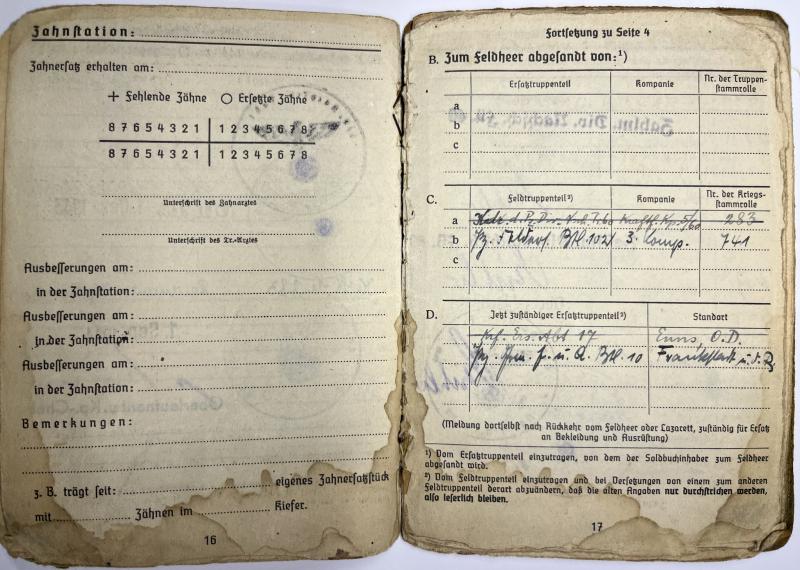 Zahnstation:
Zahnersatz erhalten am:
+ Fehlende Zähne ○ Ersetzte Zähne
8 7 6 5 4 3 2 1 | 1 2 3 4 5 6 7 8
8 7 6 5 4 3 2 1 | 1 2 3 4 5 6 7 8
Unterschrift des Zahnarztes
Unterschrift des Tr.-Arztes
Ausbesserungen am:
in der Zahnstation:
Ausbesserungen am:
in der Zahnstation:
Ausbesserungen am:
in der Zahnstation:
Bemerkungen:
z. B. trägt seit: eigenes Zahnersatzstück
mit Zähnen im Kiefer.
16
Fortsetzung zu Seite 4
B. Zum Feldheer abgesandt von:¹)
Ersatztruppenteil Kompanie Nr. der Truppen-
stammrolle
a
b
c
C. Feldtruppenteil²) Kompanie Nr. der Kriegs-
stammrolle
a 283
b Btl. 3. Komp. 741
c
D. Jetzt zuständiger Ersatztruppenteil²) Standort
Ers. Abt 17 Enns, O.D.
Btl. 10
(Meldung dortselbst nach Rückkehr vom Feldheer oder Lazarett, zuständig für Ersatz
an Bekleidung und Ausrüstung)
¹) Vom Ersatztruppenteil einzutragen, von dem der Soldbuchinhaber zum Feldheer
abgesandt wird.
²) Vom Feldtruppenteil einzutragen und bei Versetzungen von einem zum anderen
Feldtruppenteil derart abzuändern, daß die alten Angaben nur durchstrichen werden,
also leserlich bleiben.
17